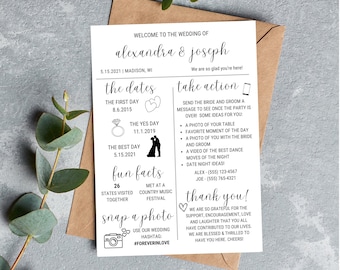 WELCOME TO THE WEDDING OF
alexandra & joseph
5.15.2021 | MADISON, WI
We are so glad you're here!
the dates
THE FIRST DAY
5.6.2015
THE YES DAY
11.1.2019
THE BEST DAY
5.15.2021
fun facts
26
STATES VISITED
TOGETHER
MET AT A
COUNTRY MUSIC
FESTIVAL
snap a photo
USE OUR WEDDING
HASHTAG:
#FOREVERINLOVE
take action
SEND THE BRIDE AND GROOM A
MESSAGE TO SEE ONCE THE PARTY IS
OVER! SOME IDEAS FOR YOU:
• A PHOTO OF YOUR TABLE
• FAVORITE MOMENT OF THE DAY
• A PHOTO OF YOU WITH THE BRIDE
AND GROOM
• A VIDEO OF THE BEST DANCE
MOVES OF THE NIGHT
• DATE NIGHT IDEAS!
ALEX - (555) 123-4567
JOE - (555) 765-4321
thank you!
WE ARE SO GRATEFUL FOR THE
SUPPORT, ENCOURAGEMENT, LOVE
AND LAUGHTER THAT YOU ALL
HAVE CONTRIBUTED TO OUR LIVES.
WE ARE BLESSED & THRILLED TO
HAVE YOU HERE. CHEERS!